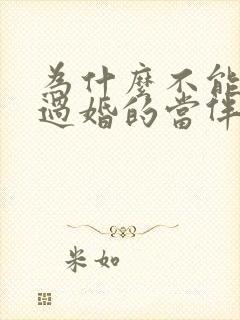 為什麼不能
過婚的當伴
米如